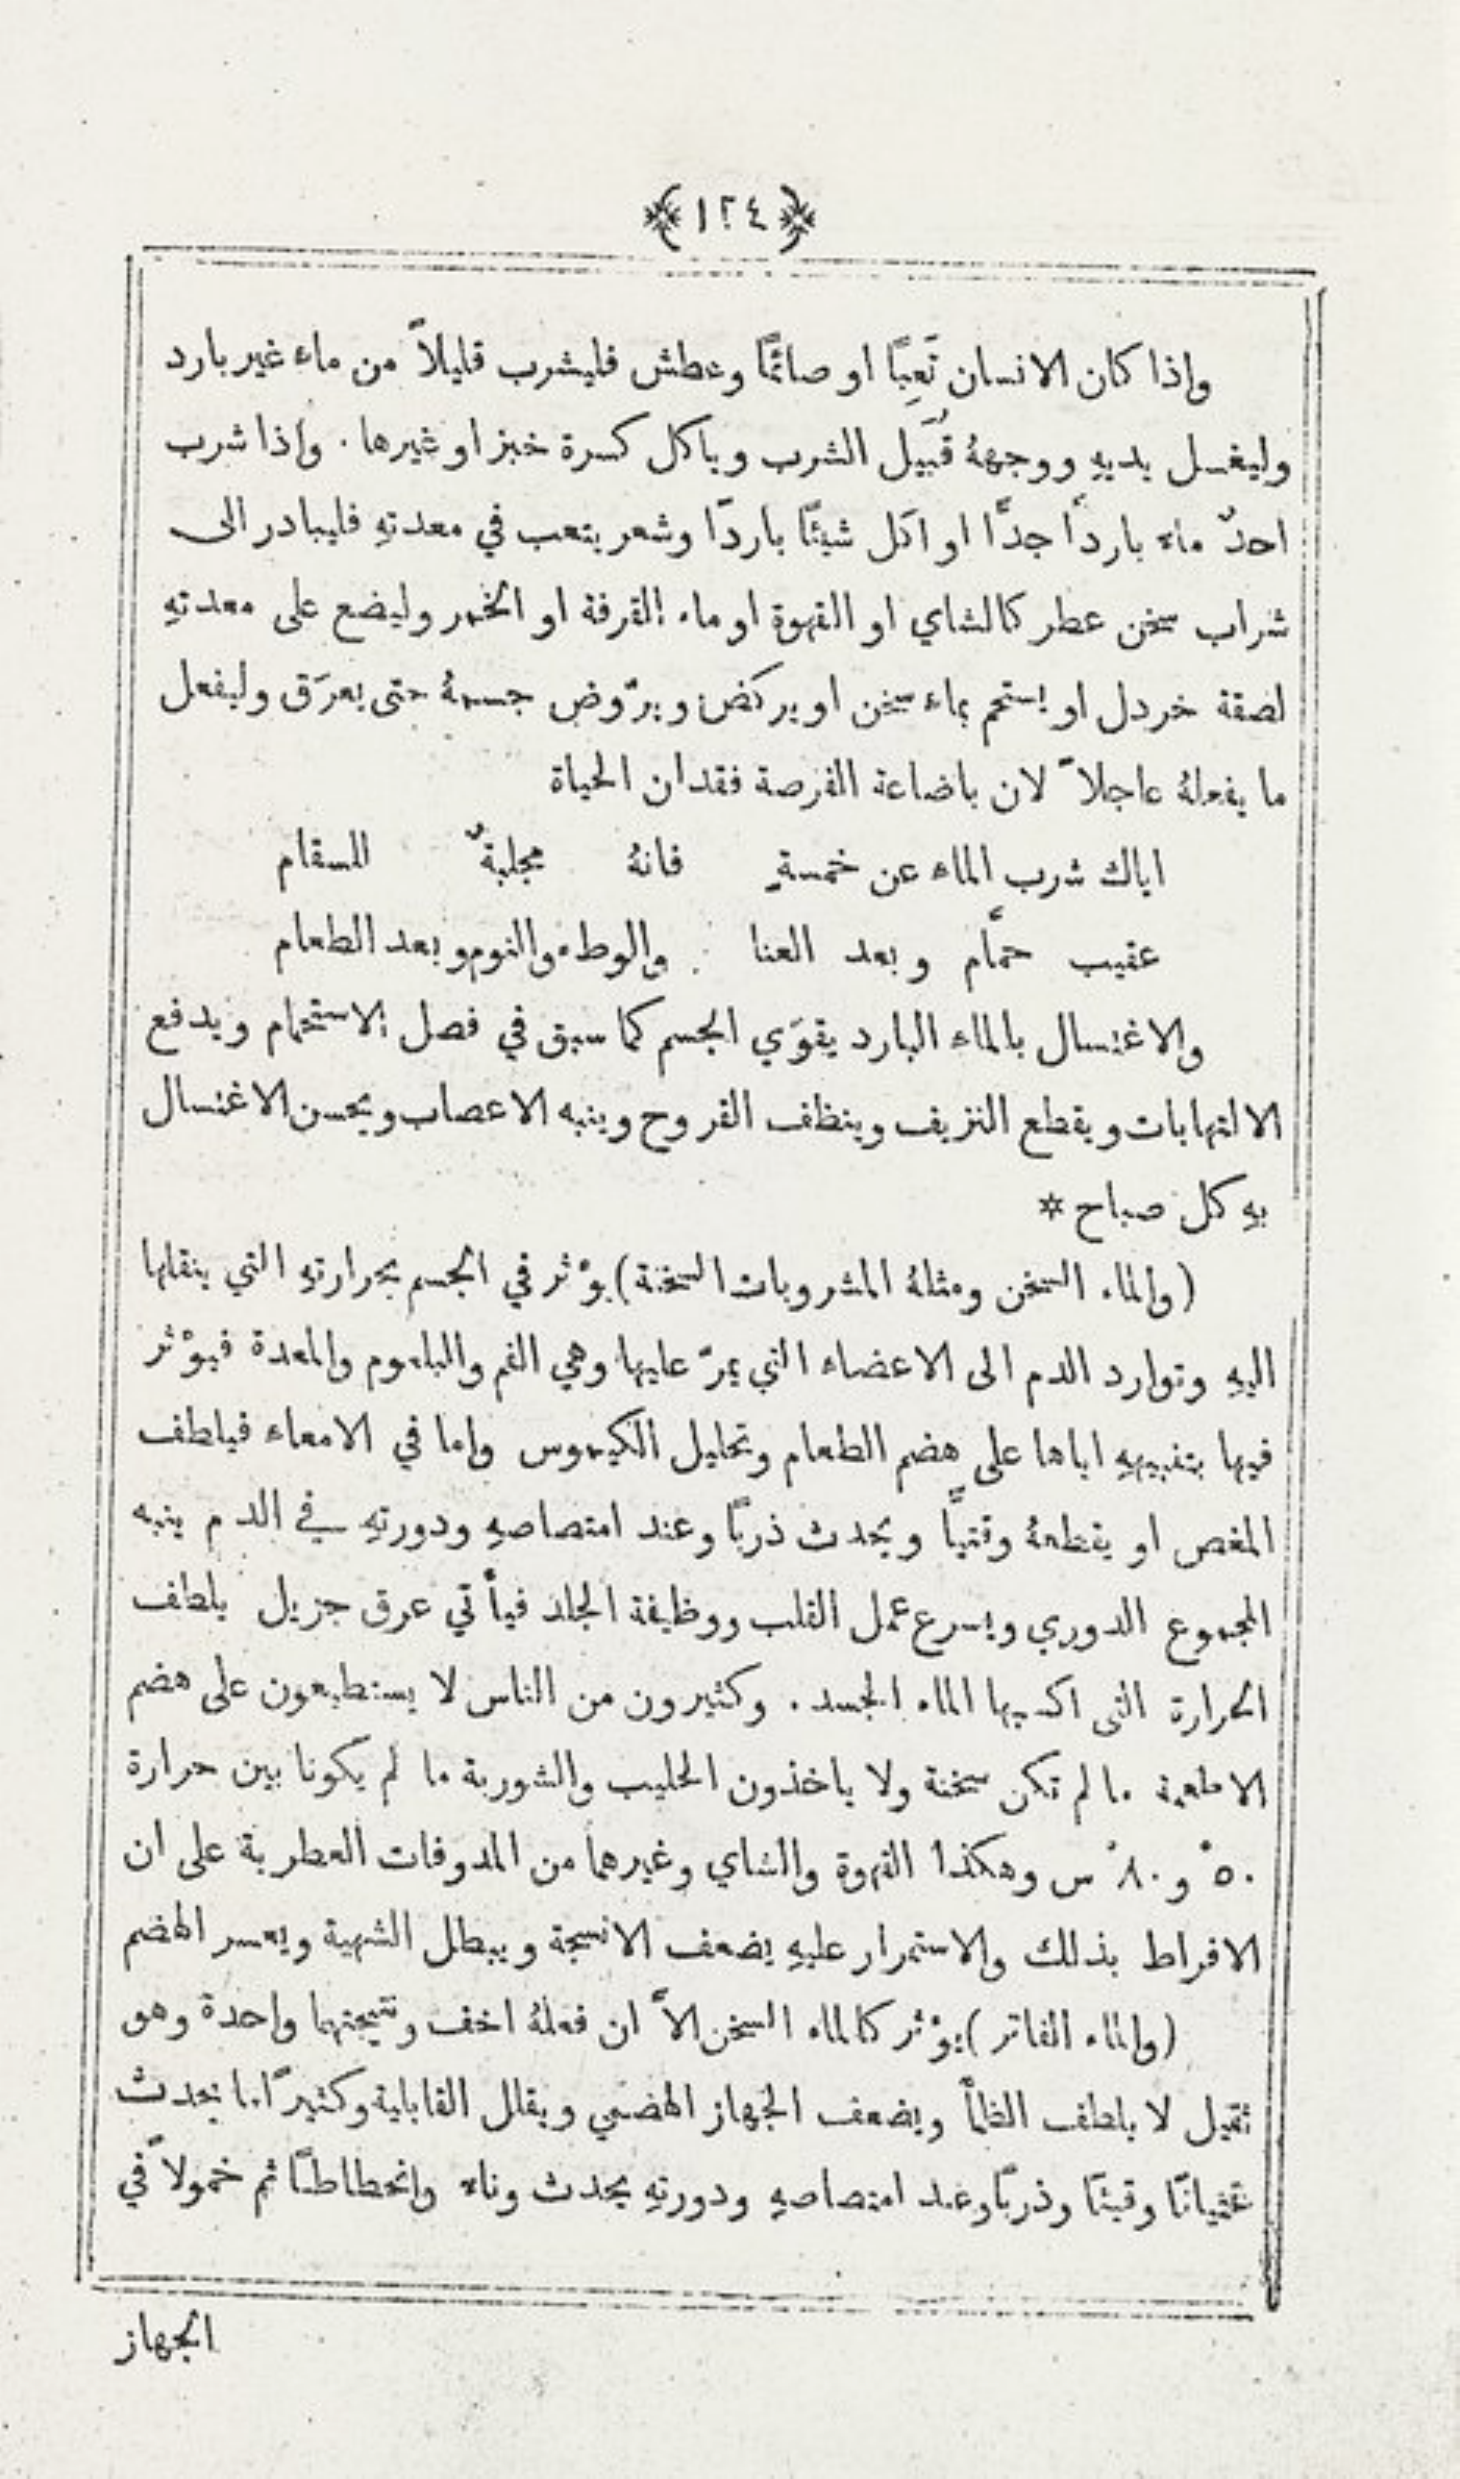 ﴿١٢٤﴾
واذا كان الانسان تَعِبًا او صائمًا وعطش فليشرب قليلاً من ماء غير بارد
وليغسل يديهِ ووجههُ قُبَيل الشرب وياكل كسرة خبز او غيرها . واذا شرب
احدٌ ماء باردأ جدًّا او اكل شيئًا باردًا وشعر بتعب في معدتهِ فليبادر الى
شراب سخن عطر كالشاي او القهوة او ماء القرفة او الخمر وليضع على معدتهِ
لصقة خردل او يستحم بماء سخن او يركض ويروّض جسمهُ حتى يعرَق وليفعل
ما يفعلهُ عاجلاً لان باضاعة الفرصة فقدان الحياة
اياك شرب الماء عن خمسةٍ فانهُ مجلبةٌ للسقام
عقيب حمَّام وبعد العنا والوطء والنوم وبعد الطعام
والاغتسال بالماء البارد يقوّي الجسم كما سبق في فصل الاستحمام ويدفع
الالتهابات ويقطع النزيف وينظف القروح وينبه الاعصاب ويحسن الاغتسال
بهِ كل صباح *
(والماء السخن ومثلهُ المشروبات السخنة) يوْثر في الجسم بحرارتهِ التي ينقلها
اليهِ وتوارد الدم الى الاعضاء التي يمرّ عليها وهي الفم والبلعوم والمعدة فيوْثر
فيها بتنبيههِ اياها على هضم الطعام وتحليل الكيموس واما في الامعاء فيلطف
المغص او يقطعهُ وقتيًّا ويحدث ذربًا وعند امتصاصهِ ودورتهِ في الدم ينبه
المجموع الدوري ويسرع عمل القلب ووظيفة الجلد فيأتي عرق جزيل يلطف
الحرارة التى اكسبها الماء الجسد . وكثيرون من الناس لا يستطيعون على هضم
الاطعمة ما لم تكن سخنة ولا ياخذون الحليب والشوربة ما لم يكونا بين حرارة
٥٠ْ و٨٠ْ س وهكذا القهوة والشاي وغيرهما من المدوفات العطرية على ان
الافراط بذلك والاستمرار عليهِ يضعف الانسجة ويبطل الشهية ويعسر الهضم
(والماء الفاتر) يوْثر كالماء السخن الاَّ ان فعلهُ اخف ونتيجتهما واحدة وهو
ثقيل لا يلطف الظمأ ويضعف الجهاز الهضمي ويقلل القابلية وكثيرًا ما يحدث
غثيانًا وقيئًا وذربًا وعند امتصاصهِ ودورتهِ يحدث وناء وانحطاطًا ثم خمولاً في
الجهاز